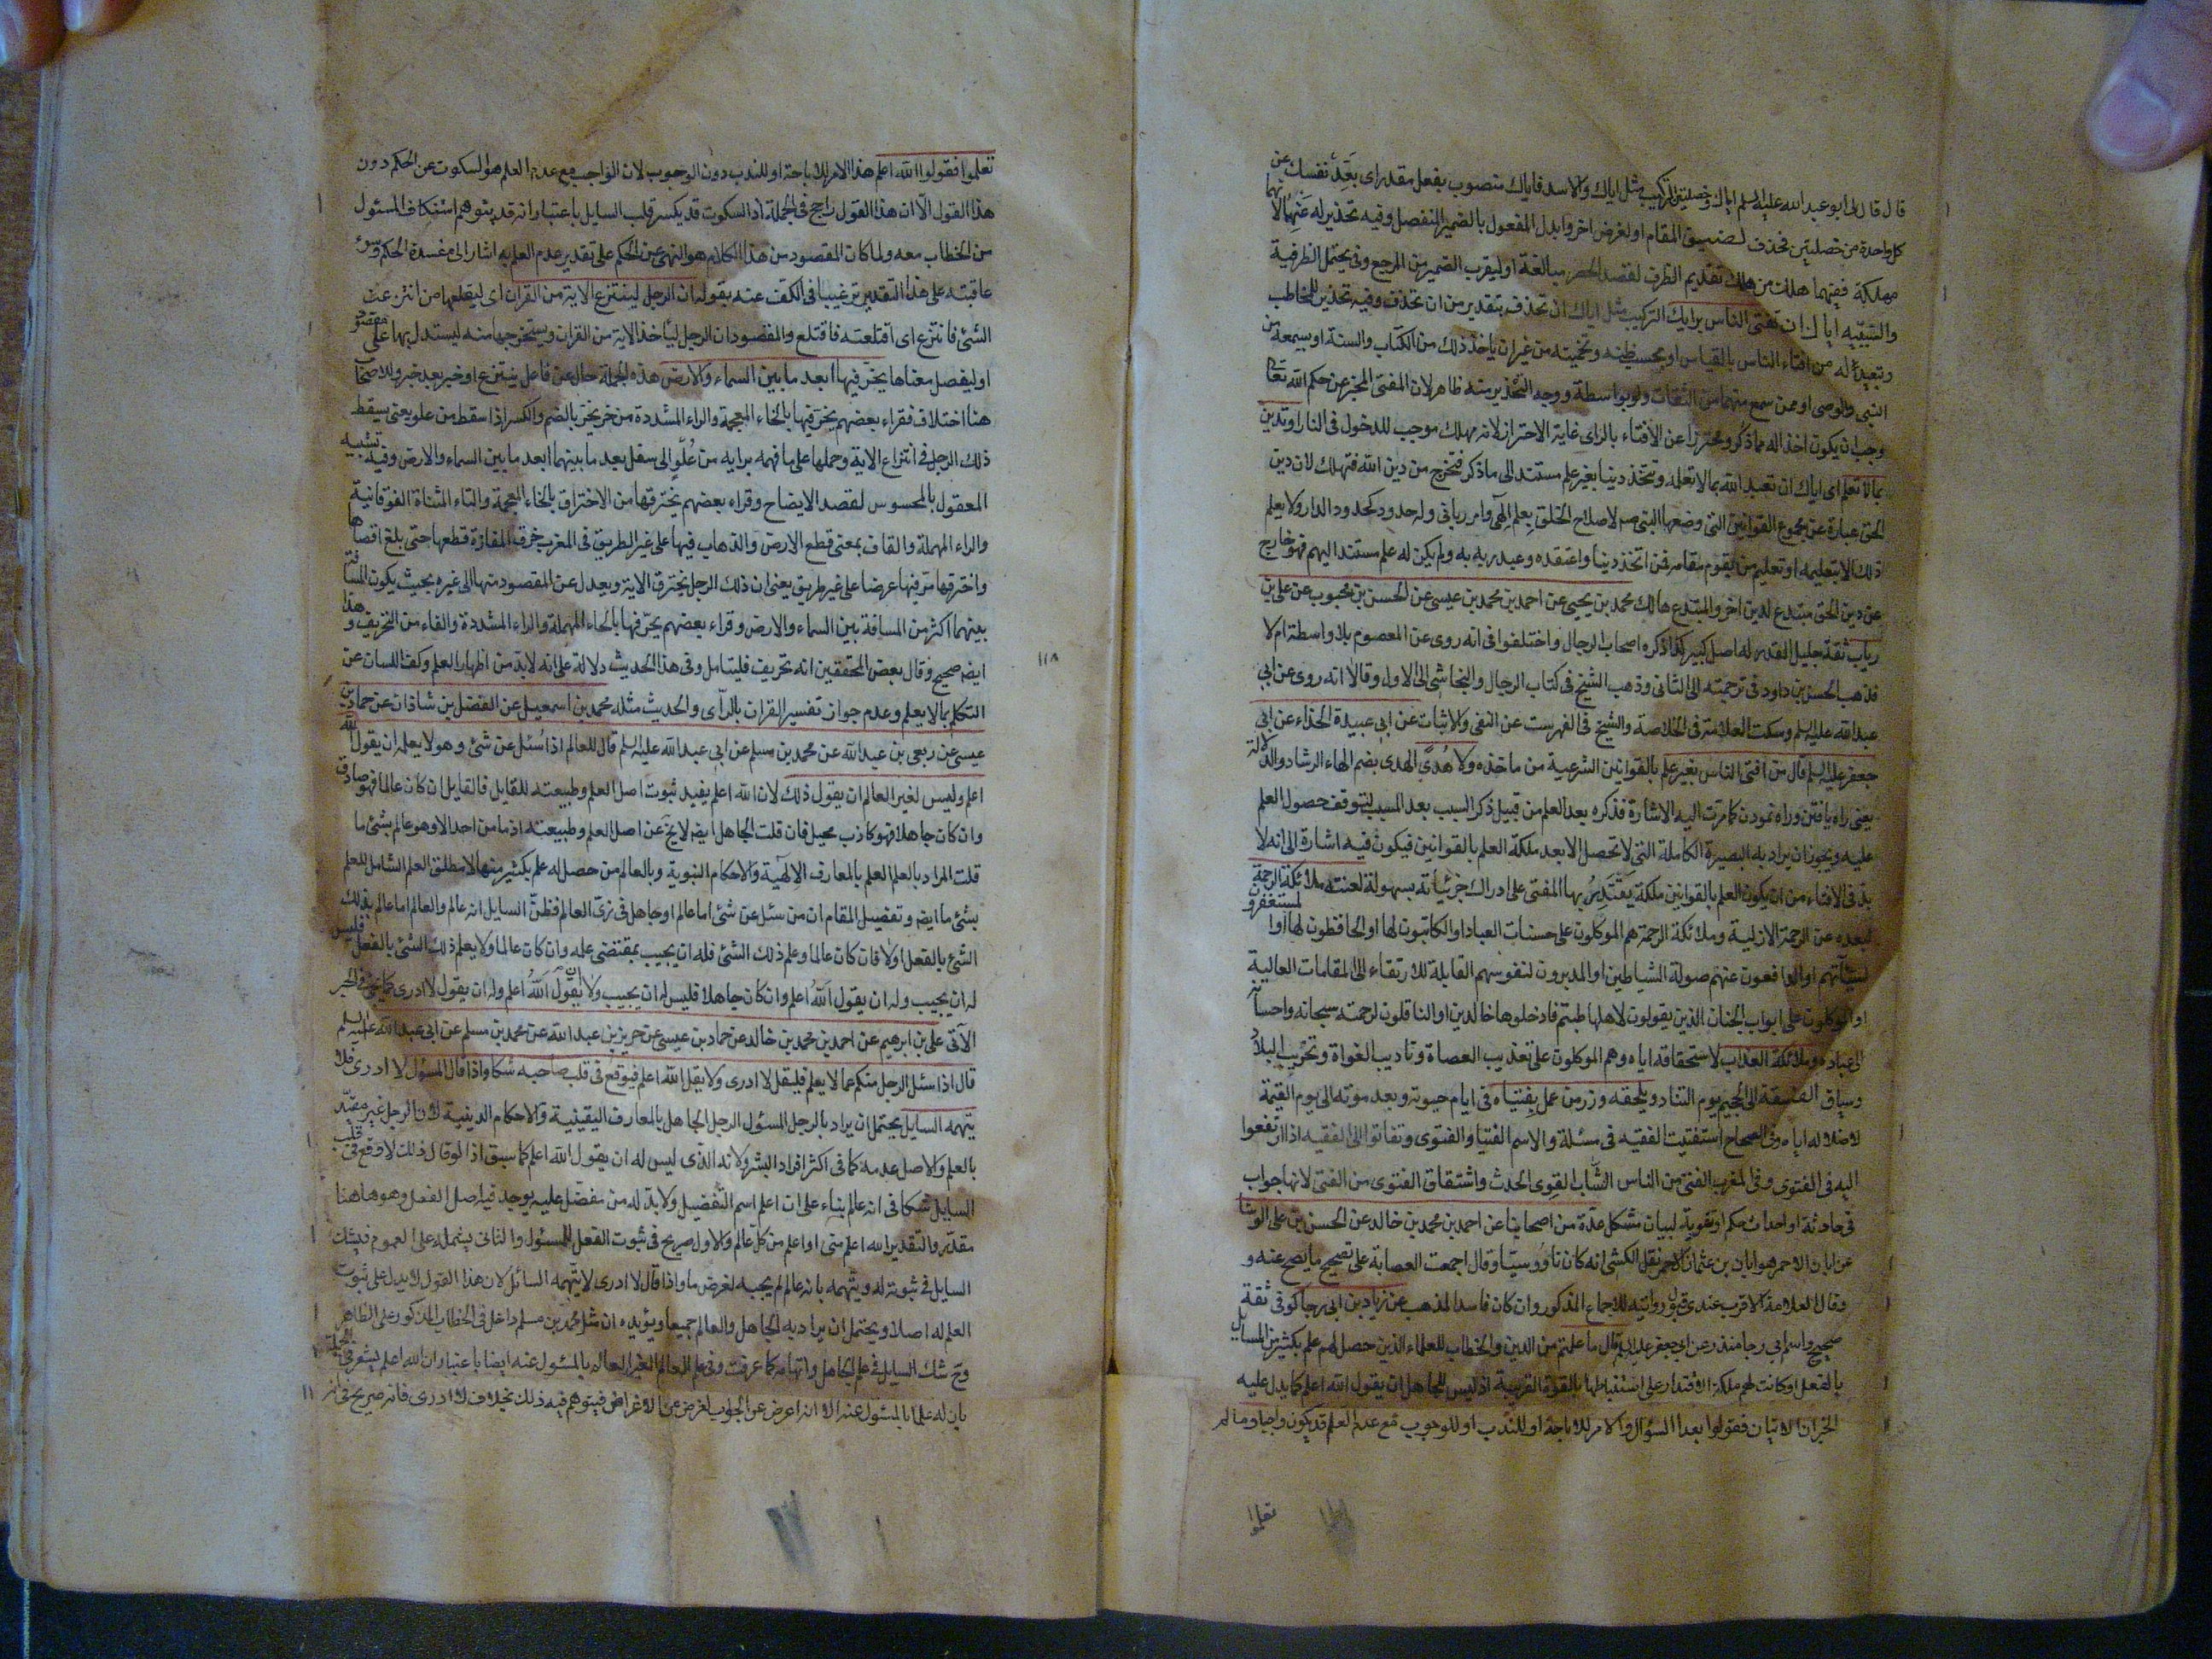 قال قال لى ابو عبد الله عليه السلم اياك وخصلتين التركيب مثل اياك والاسد فاياك منصوب بفعل مقدر اى بعد نفسك عن
كل واحدة من خصلتين فحذف لضيق المقام او لغرض اخر وابدل المفعول بالضمير المنفصل وفيه تحذير له عنهما لانهما
مهلكة ففيهما هلك من هلك تقديم الظرف لقصد الحصر مبالغة او ليقرب الضمير من المرجع وفى يحتمل الظرفية
والسببيه اياك ان تفتى الناس برايك التركيب مثل اياك ان تحذف بتقدير من ان تحذف وفيه تحذير للمخاطب
وتبعيد له من افتاء الناس بالقياس او بحسب ظنه وتخمينه من غير ان ياخذ ذلك من الكتاب والسنة او يسمعه من
النبى والوصى او ممن سمع منهما من الثقات ولو بواسطة ووجه التحذير منه ظاهر لان المفتى المخبر عن حكم الله تعالى
وجب ان يكون اخذ اله مما ذكر ومحترزا عن الافتاء بالراى غاية الاحتراز لانه مهلك موجب للدخول فى النار او تدين
بما لا تعلم اى اياك ان تعبد الله بما لا تعلمه وتتخذ دينا بغير علم مستند الى ما ذكر فتخرج من دين الله فتهلك لان دين
الحق عبارة عن مجموع القوانين التى وضعها النبى ص لاصلاح الخلق بعلم الهى وامر ربانى وله حدود كحدود الدار ولا يعلم
ذلك الا بتعليمه او تعليم من يقوم مقامه فمن اتخذ دينا واعتقده وعبد ربه به ولم يكن له علم مستند اليهم فهو خارج
عن دين الحق مبتدع لدين اخر والمبتدع هالك محمد بن يحيى عن احمد بن محمد بن عيسى عن الحسن بن محبوب عن على بن
رياب ثقة جليل القدر له اصل كبير كذا ذكره اصحاب الرجال واختلفوا فى انه روى عن المعصوم بلا واسطة ام لا
فذهب الحسن بن داود فى ترجمته الى الثانى وذهب الشيخ فى كتاب الرجال والنجاشى الى الاول وقالا انه روى عن ابى
عبد الله عليه السلم وسكت العلامة فى الخلاصة والشيخ فى الفهرست عن النفى والاثبات عن ابى عبيدة الحذاء عن ابى
جعفر عليه السلم قال من افتى الناس بغير علم بالقوانين الشرعية من ماخذه ولا هدى الهدى بضم الهاء الرشاد والدلالة
يعنى راه يافتن وراه نمودن كما مرت اليه الاشارة فذكره بعد العلم من قبيل ذكر السبب بعد المسبب لتوقف حصول العلم
عليه ويجوز ان يراد به البصيرة الكاملة التى لا تحصل الا بعد ملكة العلم بالقوانين فيكون فيه اشارة الى انه لا
بد فى الافتاء من ان يكون العلم بالقوانين ملكة يقتدر بها المفتى على ادراك جزئياته بسهولة لعنته ملائكة الرحمة
لبعده عن الرحمة الازلية وملائكة الرحمة هم الموكلون على حسنات العباد او الكاتبون لها او الحافظون لها او المستغفرون
لسيآتهم او الدافعون عنهم صولة الشياطين او المدبرون لنفوسهم القابلة للارتقاء الى المقامات العالية
او الموكلون على ابواب الجنان الذين يقولون لاهلها طبتم فادخلوها خالدين او الناقلون لرحمته سبحانه واحسانه
الى عباده وملائكة العذاب لاستحقاقه اياه وهم الموكلون على تعذيب العصاة وتاديب الغواة وتخريب البلاد
وسياق الفسقة الى الجحيم يوم التناد ويلحقه وزر من عمل بفتياه فى ايام حيوته وبعد موته الى يوم القيمة
لاضلاله اياه وفى الصحاح استفتيت الفقيه فى مسئلة والاسم الفتيا والفتوى وتفاتوا الى الفقيه اذا ارتفعوا
اليه فى الفتوى وفى المغرب الفتى من الناس الشاب القوى الحدث واشتقاق الفتوى من الفتى لانها جواب
فى حادثة او احداث حكم او تقوية لبيان مشكل عدة من اصحابنا عن احمد بن محمد بن خالد عن الحسن بن على الوشا
عن ابان الاحمر هو ابان بن عثمان الاحمر نقل الكشى انه كان ناووسيا وقال اجمعت العصابة على تصحيح ما يصح عنه و
وقال العلامة الاقرب عندى قبول روايته للاجماع المذكور وان كان فاسد المذهب عن زياد بن ابى رجا كوفى ثقة
صحيح واسم ابى رجا منذر عن ابى جعفر عليه السلم قال ما علمتم من الدين والخطاب للعلماء الذين حصل لهم علم بكثير من المسايل
بالفعل او كانت لهم ملكة الاقتدار على استنباطها بالقوة القريبة اذ ليس للجاهل ان يقول الله اعلم كما يدل عليه
الخبران الاتيان فقولوا بعد السؤال والامر للاباحة او للندب او للوجوب مع عدم العلم قد يكون واجبا وما لم
تعلموا
تعلموا فقولوا الله اعلم هذا الامر للاباحة او للندب دون الوجوب لان الواجب مع عدم العلم هو السكوت عن الحكم دون
هذا القول الا ان هذا القول راجح فى الجملة اذ السكوت قد يكسر قلب السايل باعتبار انه قد يتوهم استنكاف المسئول
من الخطاب معه ولما كان المقصود من هذا الكلام هو النهى عن الحكم على تقدير عدم العلم به اشار الى مفسدة الحكم وسوء
عاقبته على هذا التقدير ترغيبا فى الكف عنه بقوله ان الرجل لينتزع الاية من القران اى ليقلعها من انتزعت
الشئ فانتزع اى اقتلعته فاقتلع والمقصود ان الرجل لياخذ الاية من القران ويستخرجها منه ليستدل بها على مقصوده
او ليفصل معناها يخر فيها ابعد ما بين السماء والارض هذه الجملة حال عن فاعل ينتزع او خبر بعد خبر وللاصحاب
هنا اختلاف فقراء بعضهم يخر فيها بالخاء المعجمة والراء المشددة من خر يخر بالضم والكسر اذا سقط من علو يعنى يسقط
ذلك الرجل فى انتزاع الاية وحملها على ما فهمه برايه من علو الى سفل بعد ما بينهما ابعد ما بين السماء والارض وفيه تشبيه
المعقول بالمحسوس لقصد الايضاح وقراء بعضهم يخترقها من الاختراق بالخاء المعجمة والتاء المثناة الفوقانية
والراء المهملة والقاف بمعنى قطع الارض والذهاب فيها على غير الطريق فى المغرب خرق المفازة قطعها حتى بلغ اقصاها
واخترقها مر فيها عرضا على غير طريق يعنى ان ذلك الرجل يخترق الاية ويعدل عن المقصود منها الى غيره بحيث يكون المسافة
بينهما اكثر من المسافة بين السماء والارض وقراء بعضهم يحرفها بالحاء المهملة والراء المشددة والفاء من التحريف وهذا
ايضا صحيح وقال بعض المحققين انه تحريف فليتامل وفى هذا الحديث دلالة على انه لا بد من اظهار العلم وكف اللسان عن
التكلم بما لا يعلم وعدم جواز تفسير القران بالراى والحديث مثله محمد بن اسمعيل عن الفضل بن شاذان عن حماد بن
عيسى عن ربعى بن عبد الله عن محمد بن مسلم عن ابى عبد الله عليه السلم قال للعالم اذا سئل عن شئ وهو لا يعلمه ان يقول الله
اعلم وليس لغير العالم ان يقول ذلك لان الله اعلم يفيد ثبوت اصل العلم وطبيعته للقايل فالقايل ان كان عالما فهو صادق
وان كان جاهلا فهو كاذب محيل فان قلت الجاهل ايضا لا يخ عن اصل العلم وطبيعته اذ ما من احد الا وهو عالم بشئ ما
قلت المراد بالعلم العلم بالمعارف الالهية والاحكام النبوية وبالعالم من حصل له علم بكثير منها لا مطلق العلم الشامل للعلم
بشئ ما ايضا وتفصيل المقام ان من سئل عن شئ اما عالم او جاهل فى زى العالم فظن السايل انه عالم والعالم اما عالم بذلك
الشئ بالفعل او لا فان كان عالما وعلم ذلك الشئ فله ان يجيب بمقتضى علمه وان كان عالما ولا يعلم ذلك الشئ بالفعل فليس
له ان يجيب وله ان يقول الله اعلم وان كان جاهلا فليس له ان يجيب ولا ان يقول الله اعلم وله ان يقول لا ادرى كما يجئ فى الخبر
الآتى على بن ابرهيم عن احمد بن محمد بن خالد عن حماد بن عيسى عن حريز بن عبد الله عن محمد بن مسلم عن ابى عبد الله عليه السلم
قال اذا سئل الرجل منكم عما لا يعلم فليقل لا ادرى ولا يقل الله اعلم فيوقع فى قلب صاحبه شكا واذا قال المسؤل لا ادرى فلا
يتهمه السايل يحتمل ان يراد بالرجل المسئول الرجل الجاهل بالمعارف اليقينية والاحكام الدينية لان الرجل غير مقيد
بالعلم والاصل عدمه كما فى اكثر افراد البشر ولانه الذى ليس له ان يقول الله اعلم كما سبق اذ لو قال ذلك لاوقع فى قلب
السايل شكا فى انه عالم بناء على ان اعلم اسم التفضيل ولا بد له من مفضل عليه يوجد فيه اصل الفعل وهو هاهنا
مقدر والتقدير الله اعلم منى او اعلم من كل عالم والاول صريح فى ثبوت الفعل للمسئول والثانى يشمله على العموم فيشك
السايل فى ثبوته له ويتهمه بانه عالم لم يجبه لغرض ما واذا قال لا ادرى لا يتهمه السائل لان هذا القول لا يدل على ثبوت
العلم له اصلا ويحتمل ان يراد به الجاهل والعالم جميعا ويؤيده ان مثل محمد بن مسلم داخل فى الخطاب المذكور على الظاهر
وح شك السايل فى علم الجاهل واتهامه كما عرفت وفى علم العالم الغير العالم بالمسئول عنه ايضا باعتبار ان الله اعلم يشعر فى الجملة
بان له علما بالمسئول عنه الا انه اعرض عن الجواب لغرض من الاغراض فيتوهم فيه ذلك بخلاف لا ادرى فانه صريح فى انه
١١٨